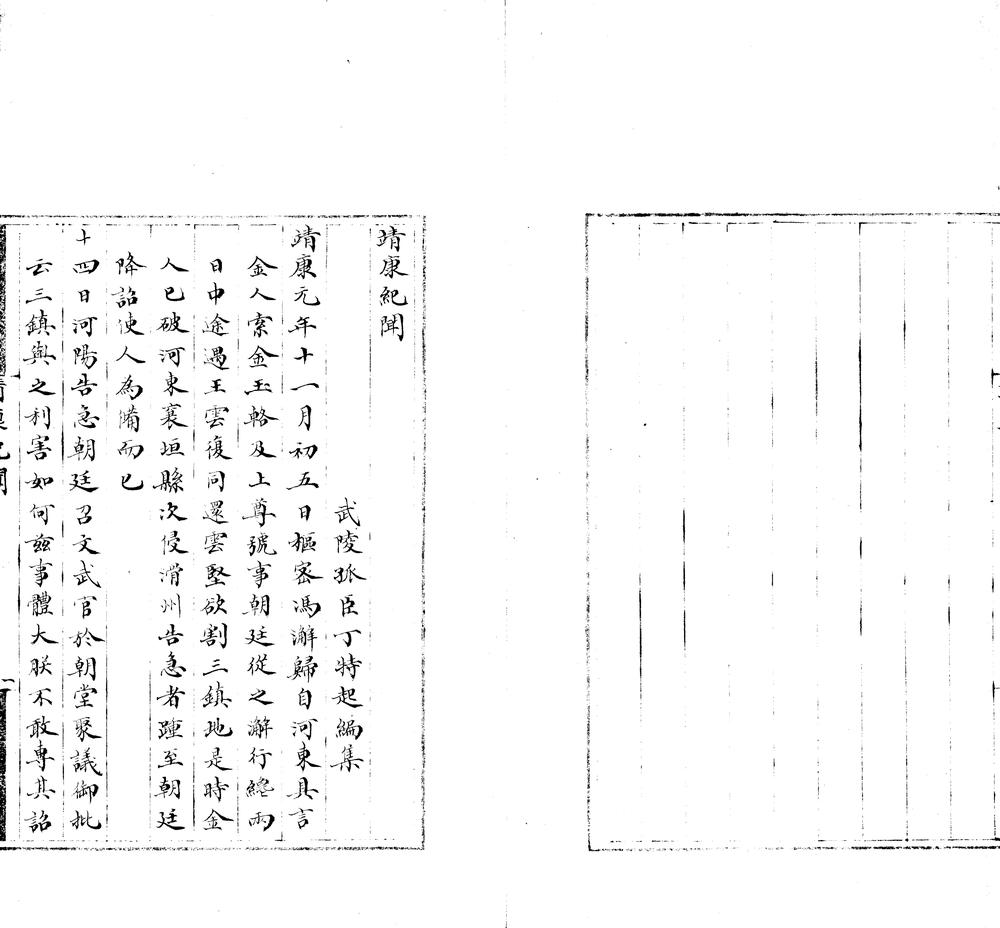 靖康紀聞
武陵孤臣丁特起編集
靖康元年十一月初五日樞密馮澥歸自河東具言
金人索金玉輅及上尊號事朝廷從之澥行纔兩
日中途遇王雲復同還雲堅欲割三鎮地是時金
人已破河東襄垣縣次侵滑州告急者踵至朝廷
降詔使人為備而已
十四日河陽告急朝廷召文武官於朝堂聚議御批
云三鎮與之利害如何茲事體大朕不敢專其詔
靖康紀聞
一